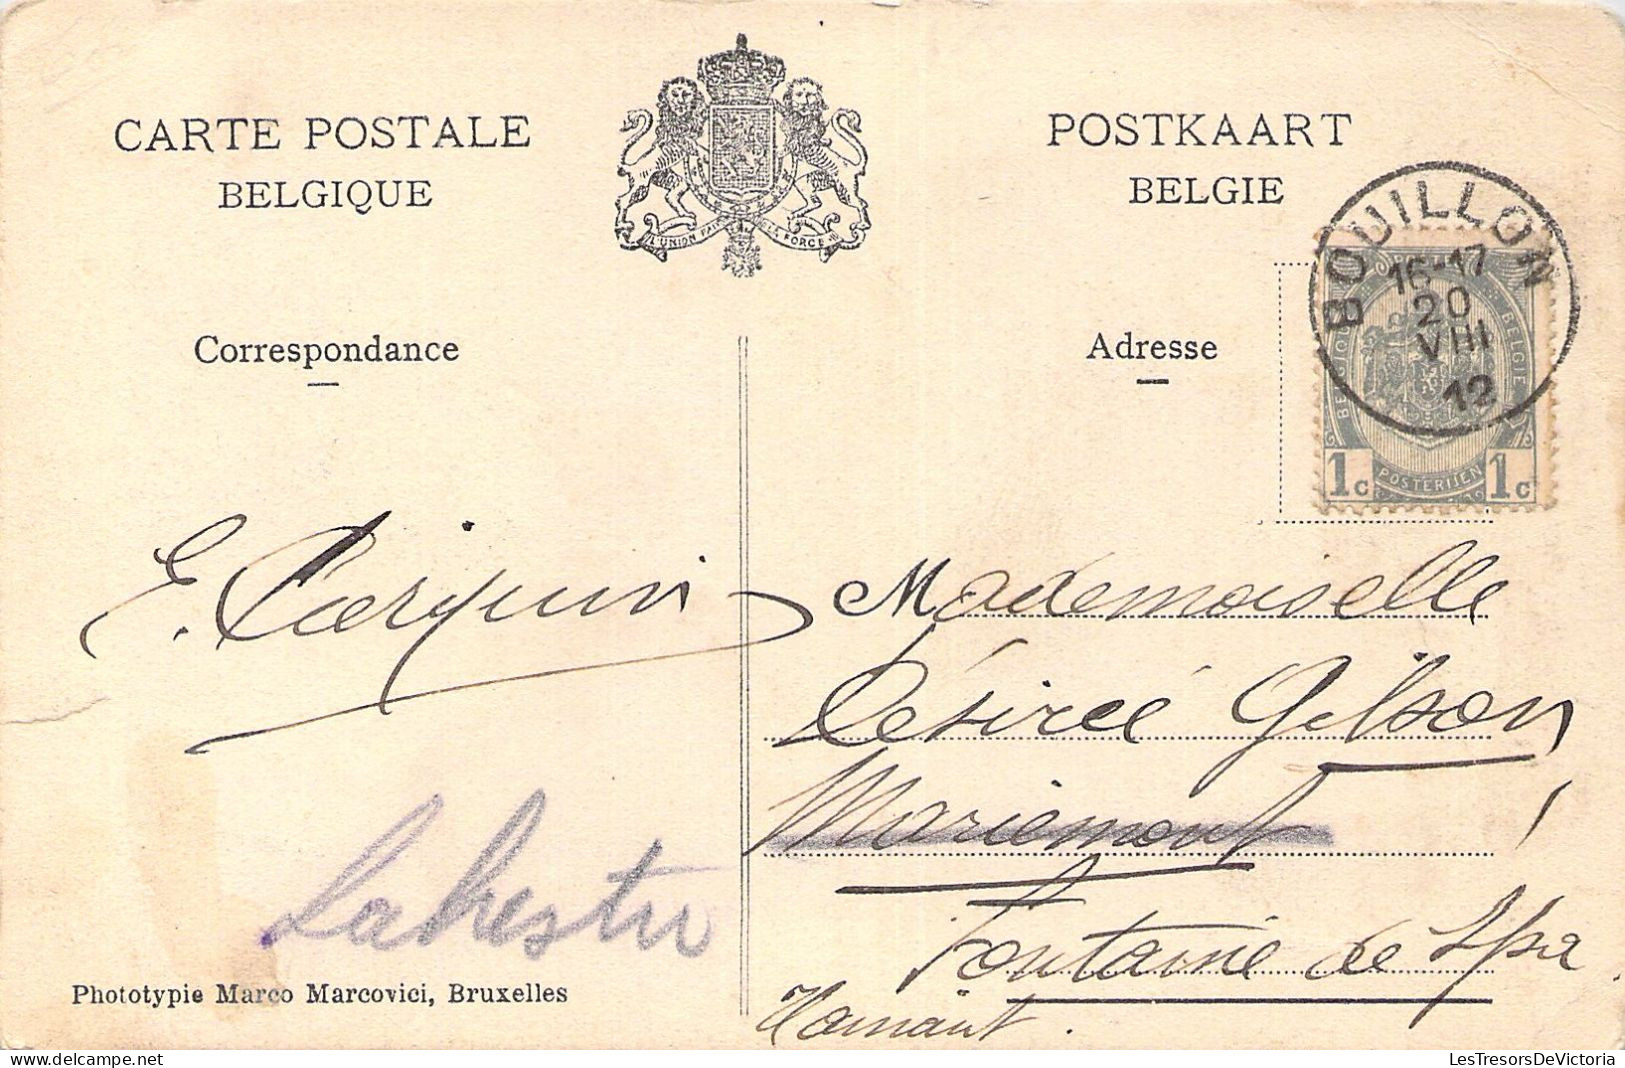 CARTE POSTALE
BELGIQUE
L'UNION FAIT LA FORCE
POSTKAART
BELGIE
BOUILLON
16-17
20
VIII
12
BELGIE
1c POSTERIJEN 1c
Correspondance
Adresse
E.
Mademoiselle
Désirée Gilson
Mariemont
Fontaine de Spa
Hainaut.
Labestre
Phototypie Marco Marcovici, Bruxelles
LesTresorsDeVictoria